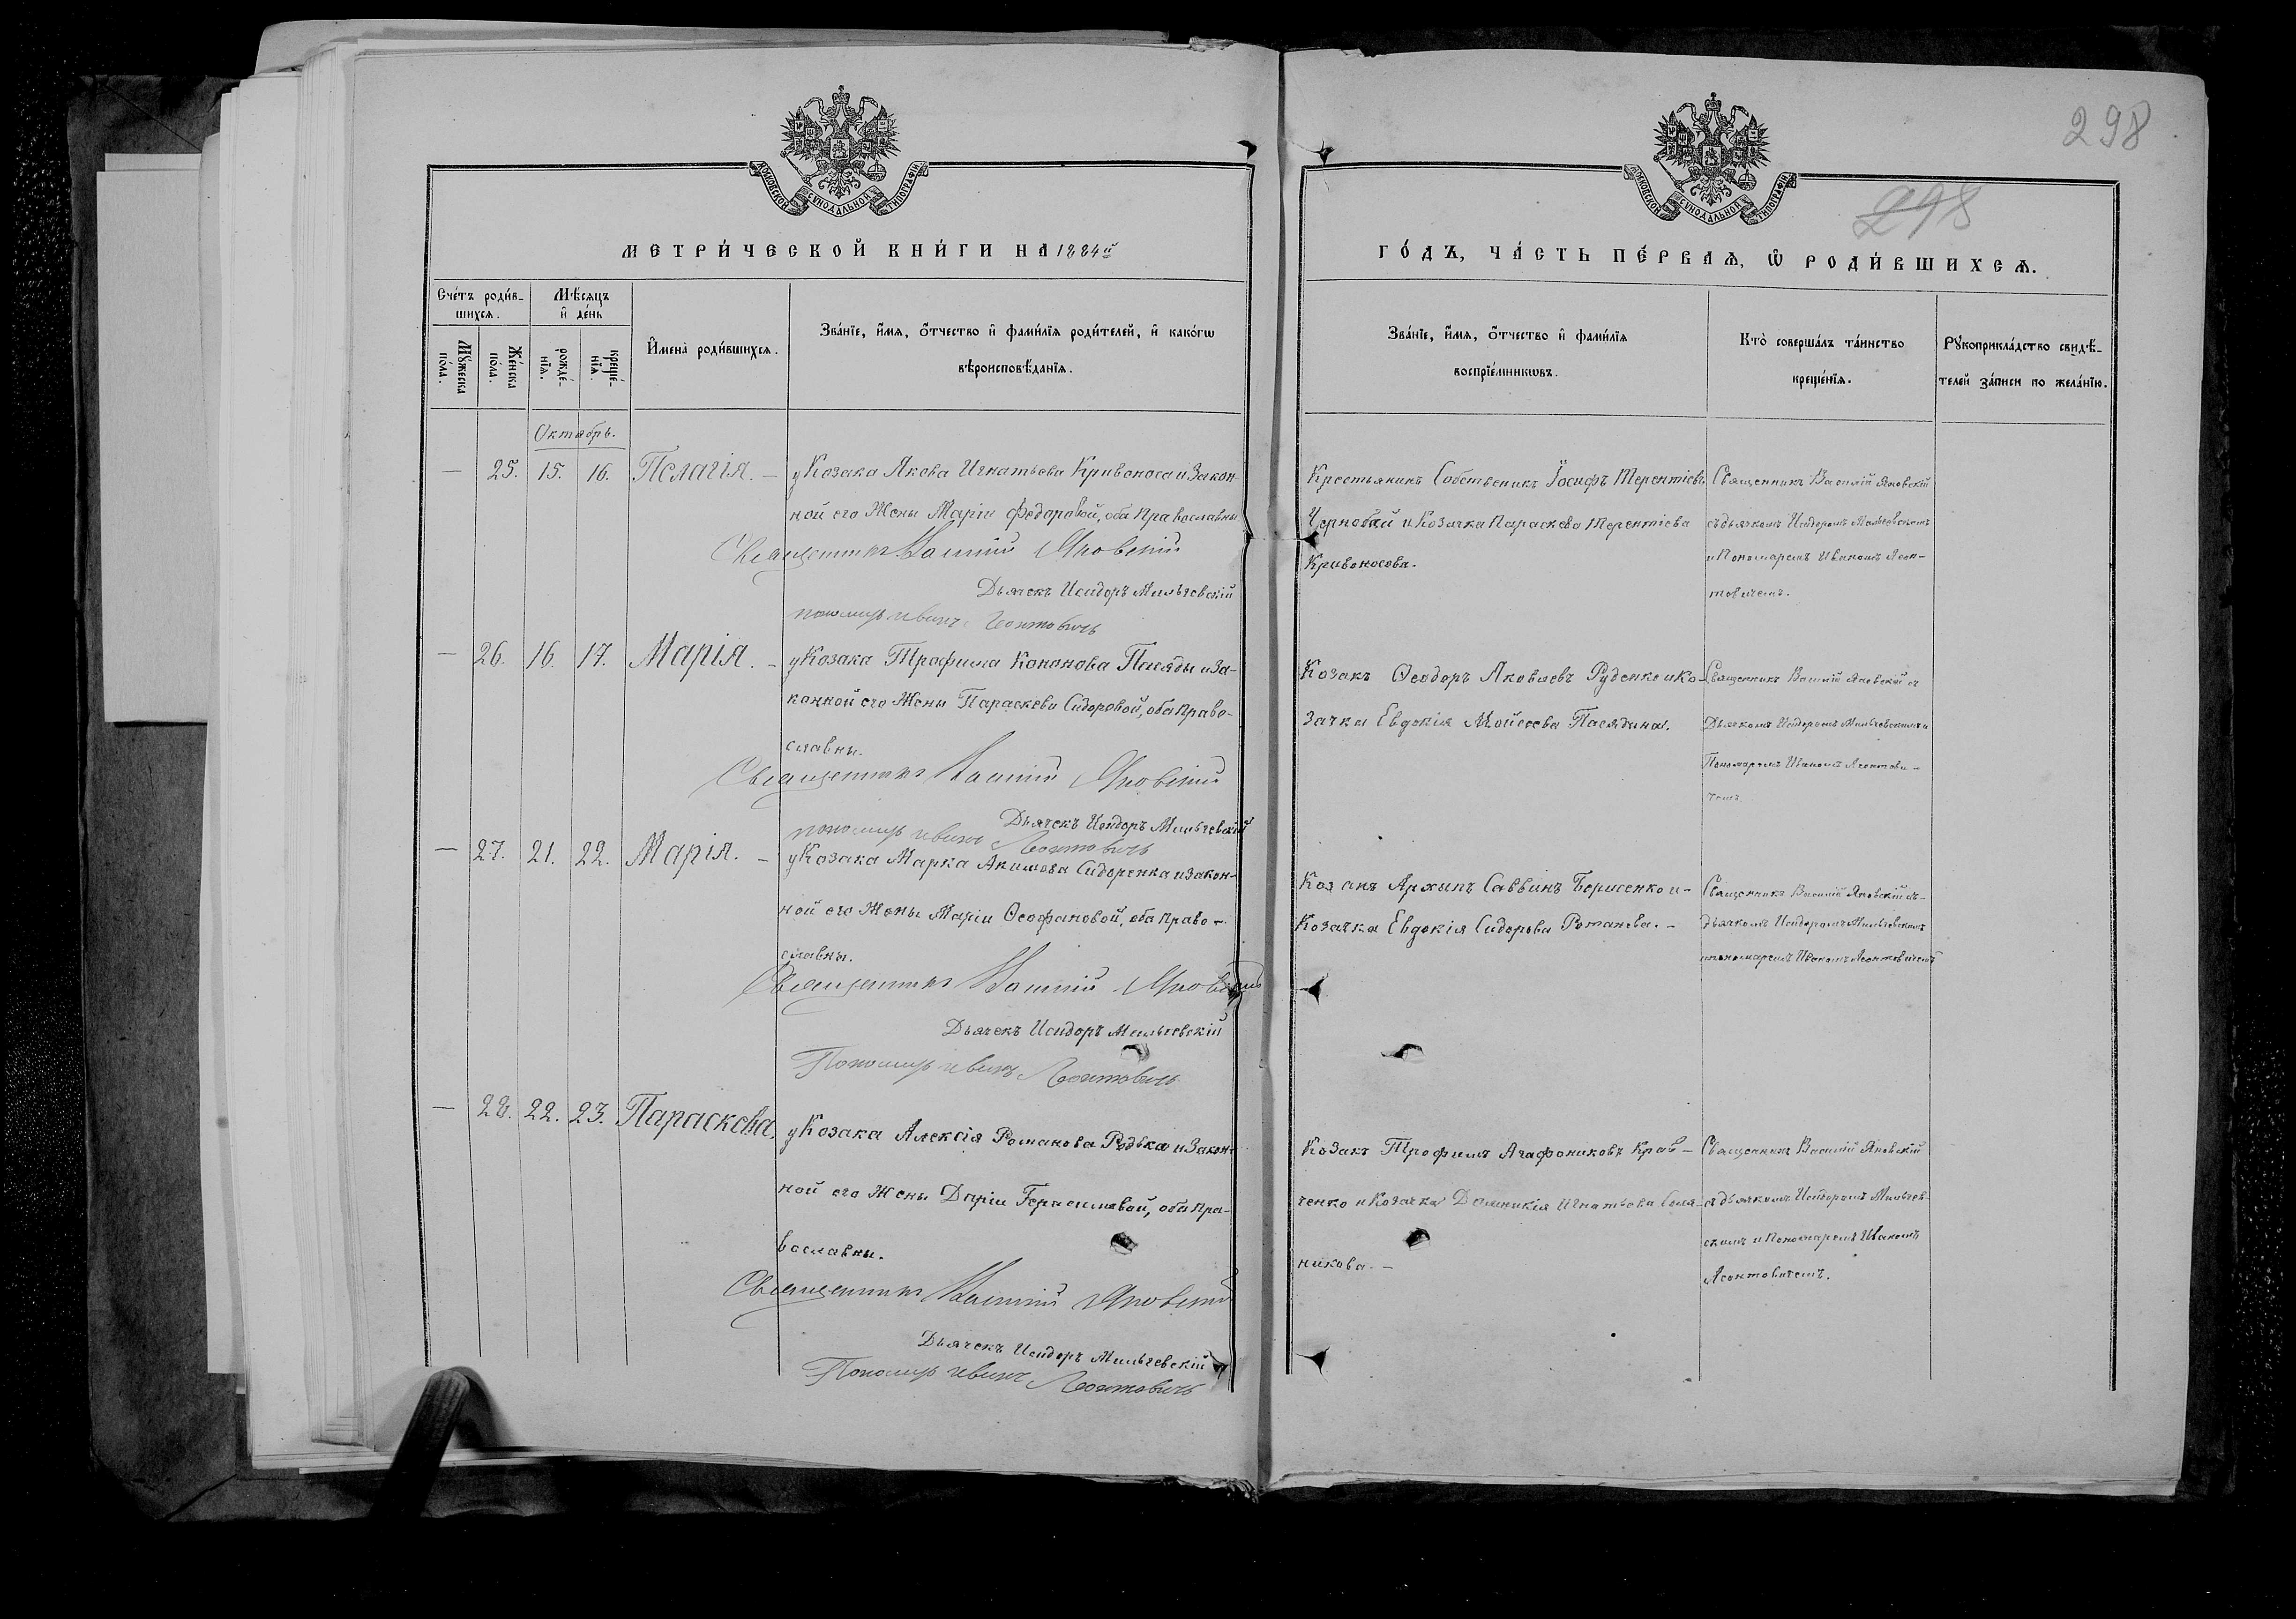 298
МОСКОВСКОЙ СѴНОДАЛЬНОЙ ТИПОГРАФІИ
МОСКОВСКОЙ СѴНОДАЛЬНОЙ ТИПОГРАФІИ
298
МЕТРИ́ЧЕСКОЙ КНИ́ГИ НА 1884й
ГО́ДЪ, ЧА́СТЬ ПЕ́РВАѦ, Ѡ РОДИ́ВШИХСѦ.
Сче́тъ роди́в-
шихсѧ.
Мꙋ́жеска
по́ла.
Же́нска
по́ла.
Мѣ́сѧцъ
и де́нь
рожде́-
нїѧ.
креще́-
нїѧ.
Имена̀ роди́вшихсѧ.
Зва́нїе, и́мѧ, ѻ́тчество и фами́лїѧ роди́телей, и како́гѡ
вѣроисповѣ́данїѧ.
Зва́нїе, и́мѧ, ѻ́тчество и фами́лїѧ
воспрїе́мникѡвъ.
Кто̀ соверша́лъ та́инство
креще́нїѧ.
Рꙋкоприкла́дство свидѣ́-
телей за́писи по жела́нїю.
Октябрь.
— 25. 15. 16. Пелагія. —
у Козака Якова Игнатьева Кривоноса и Закон-
ной его Жены Маріи Федоровой, оба Православны
Священникъ Василій Яновскій
Дьячекъ Исидоръ Мильчевскій
пономарь Иванъ Леонтовичь
Крестьянинъ Собственикъ Іосифъ Терентіевъ
Чернобай и Козачка Параскева Терентіева
Кривоносова.
Священникъ Василій Яновскій
съ дьячкомъ Исидоромъ Мильчевскимъ
и Пономаремъ Иваномъ Леон-
товичемъ.
— 26. 16. 17. Марія. —
у Козака Трофима Кононова Пасяды и За-
конной его Жены Параскевы Сидоровой, оба Право-
славны.
Священникъ Василій Яновскій
Дьячекъ Исидоръ Мильчевскій
пономарь Иванъ Леонтовичь
Козакъ Ѳеодоръ Яковлевъ Руденко и Ко-
зачка Евдокія Мойсеева Пасядина.
Священникъ Василій Яновскій съ
Дьячкомъ Исидоромъ Мильчевскимъ и
Пономаремъ Иваномъ Леонтови-
чемъ.
— 27. 21. 22. Марія. —
у Козака Марка Акимова Сидоренка и Закон-
ной его Жены Маріи Ѳеофановой, оба Право-
славны.
Священникъ Василій Яновскій
Дьячекъ Исидоръ Мильчевскій
Пономарь Иванъ Леонтовичь
Козакъ Архипъ Саввинъ Борисенко и-
Козачка Евдокія Сидорова Романова. -
Священникъ Василій Яновскій съ-
дьячкомъ Исидоромъ Мильчевскимъ
и пономаремъ Иваномъ Леонтовичемъ
— 28. 22. 23. Параскева.
у Козака Алексія Романова Редька и Закон-
ной его Жены Даріи Герасимовой, оба Пра-
вославны.
Священникъ Василій Яновскій
Дьячекъ Исидоръ Мильчевскій
Пономарь Иванъ Леонтовичь
Козакъ Трофимъ Агафониковъ Крав-
ченко и Козачка Домникія Игнатьева Соля-
никова. -
Священникъ Василій Яновскій
съ дьячкомъ Исидоромъ Мильчев-
скимъ и Пономаремъ Иваномъ
Леонтовичемъ.